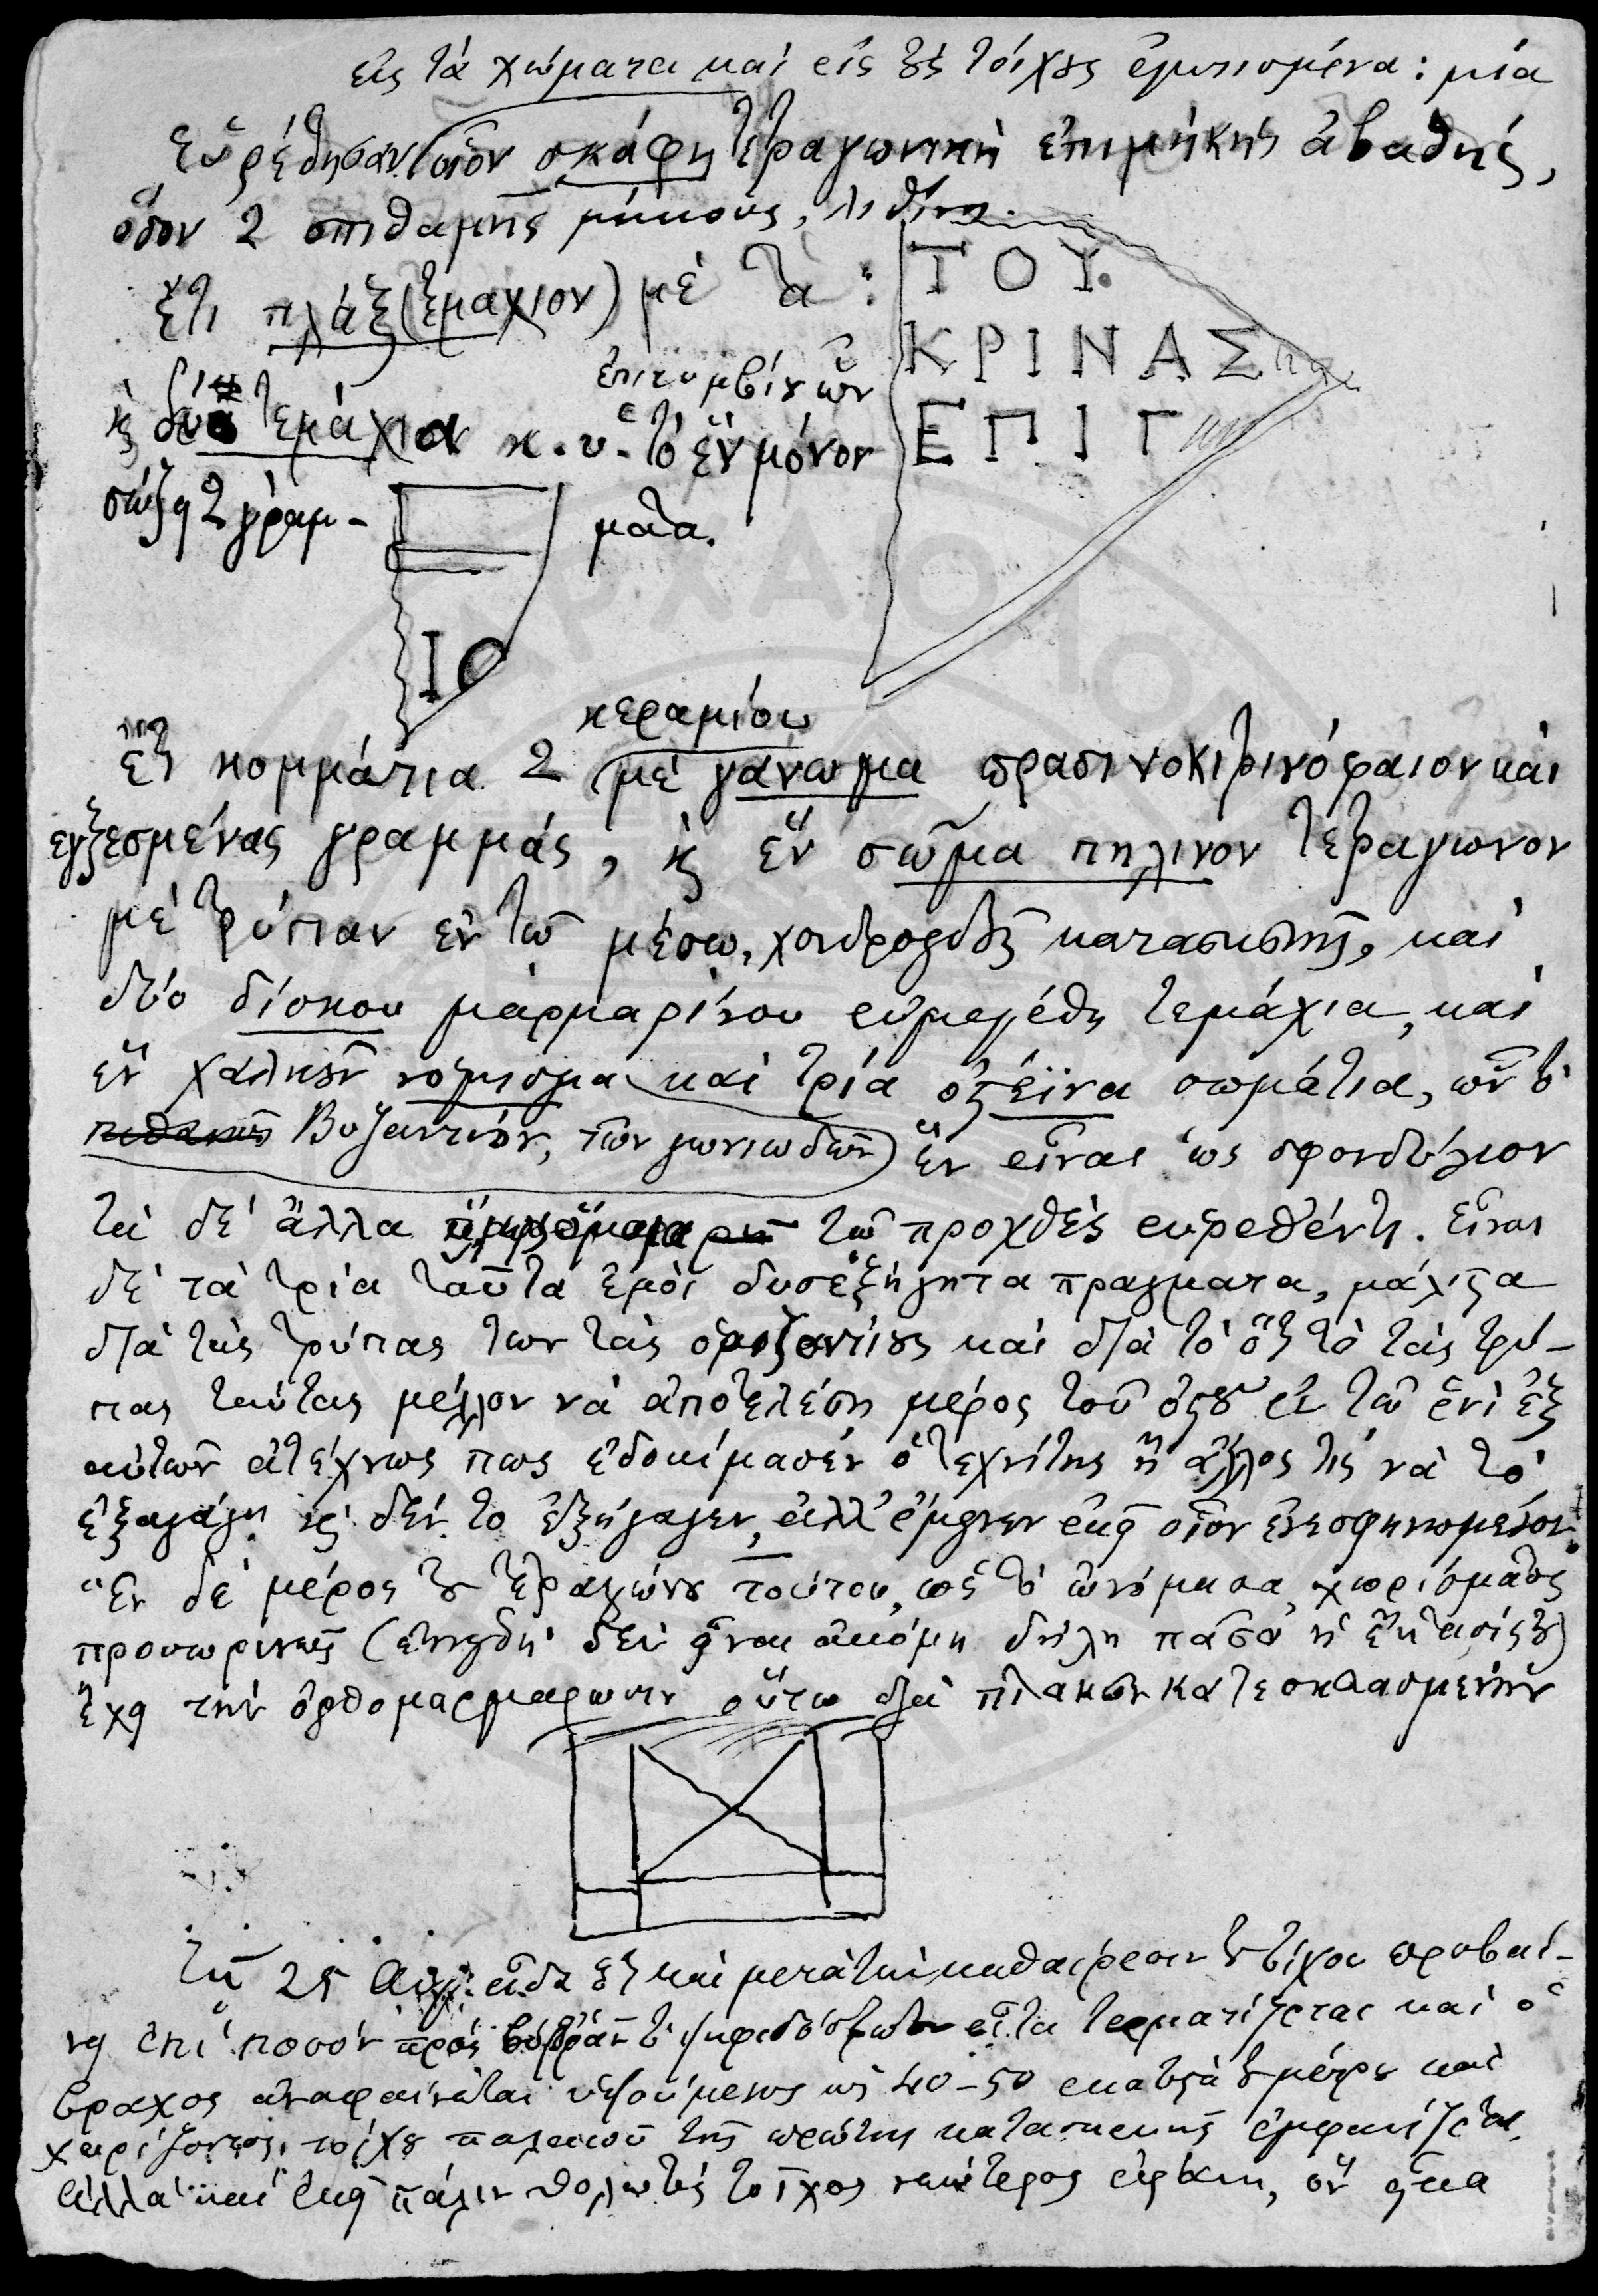 εἰς τὰ χώματα καὶ εἰς τὲς τοίχους : μία
Εὑρέθησαν (οἷον σκάφη τετραγωνικὴ ἐπιμήκης ἀβαθής,
ὅσον 2 σπιθαμῆς μήκους, λιθίνη.
ἔτι πλάξ (τεμάχιον) μὲ τὰ :
ΤΟΥ
ΚΡΙΝΑΣ
ΕΠΙΓ
ἐπιτυμβίου ὧν
κ δύο τεμάχια κ.υ. τὸ ἓν μόνον
σώζει 2 γράμ-
ματα.
ΙΟ
κεραμίου
ἔτι κομμάτια 2 (μὲ γάνωμα πρασινοκιτρινόφαιον καὶ
ἐγξεσμένας γραμμάς, κ ἓν σῶμα πήλινον τετράγωνον
μὲ τρύπαν ἐν τῷ μέσῳ, χονδροειδῆ κατασκευῆς, καὶ
δύο δίσκου μαρμαρίνου εὐμεγέθη τεμάχια, καὶ
ἓν χαλκοῦν νόμισμα καὶ τρία ὀστέϊνα σωμάτια, ὧν τὸ
πιθανῶς Βυζαντινόν, τῶν γωνιωδῶν) ἓν εἶναι ὡς σφονδύλιον
τὰ δὲ ἄλλα τῷ προχθὲς εὑρεθέντι. Εἶναι
δὲ τὰ τρία ταῦτα ἐμοὶ δυσεξήγητα πράγματα, μάλιστα
διὰ τὰς τρύπας των τὰς ὁριζοντίους καὶ διὰ τὸ ὅτι τὸ τὰς τρύ-
πας ταύτας μέλλον νὰ ἀποτελέσῃ μέρος τοῦ ὀστοῦ ἐν τῷ ἑνὶ ἐξ
αὐτῶν ἀτέχνως πως ἐδοκίμασεν ὁ τεχνίτης ἢ ἄλλος τις νὰ τὸ
ἐξαγάγῃ κ δὲν τὸ ἐξήγαγεν, ἀλλ' ἔμεινεν ἐκεῖ οἷον ἐνεσφηνωμένον.
Ἓν δὲ μέρος τοῦ τετραγώνου τούτου, ὡς τὸ ὠνόμασα χωρίσματος
προσωρινῶς (ἐπειδὴ δὲν εἶναι ἀκόμη δήλη πᾶσα ἡ ἔκτασίς του)
ἔχει τὴν ὀρθομαρμάρωσιν οὕτω διὰ πλακῶν κατεσκευασμένην
Τῇ 25 Αὐγ. εἶδα ὅτι καὶ μετὰ τὴν καθαίρεσιν τοῦ τοίχου προβαί-
νει ἐπὶ ποσὸν πρὸς βορρᾶν τὸ ψηφιδόστρωτον εἶτα τερματίζεται καὶ ὁ
βράχος ἀναφαίνεται ὑψούμενος ὡς 40-50 ἑκατοστὰ τοῦ μέτρου καὶ
χωρίζοντος τοίχου παλαιοῦ τῆς πρώτης κατασκευῆς ἐμφανίζεται.
ἀλλὰ καὶ ἐκεῖ πάλιν θολωτὸς τοῖχος νεώτερος εὑρέθη, ὃν